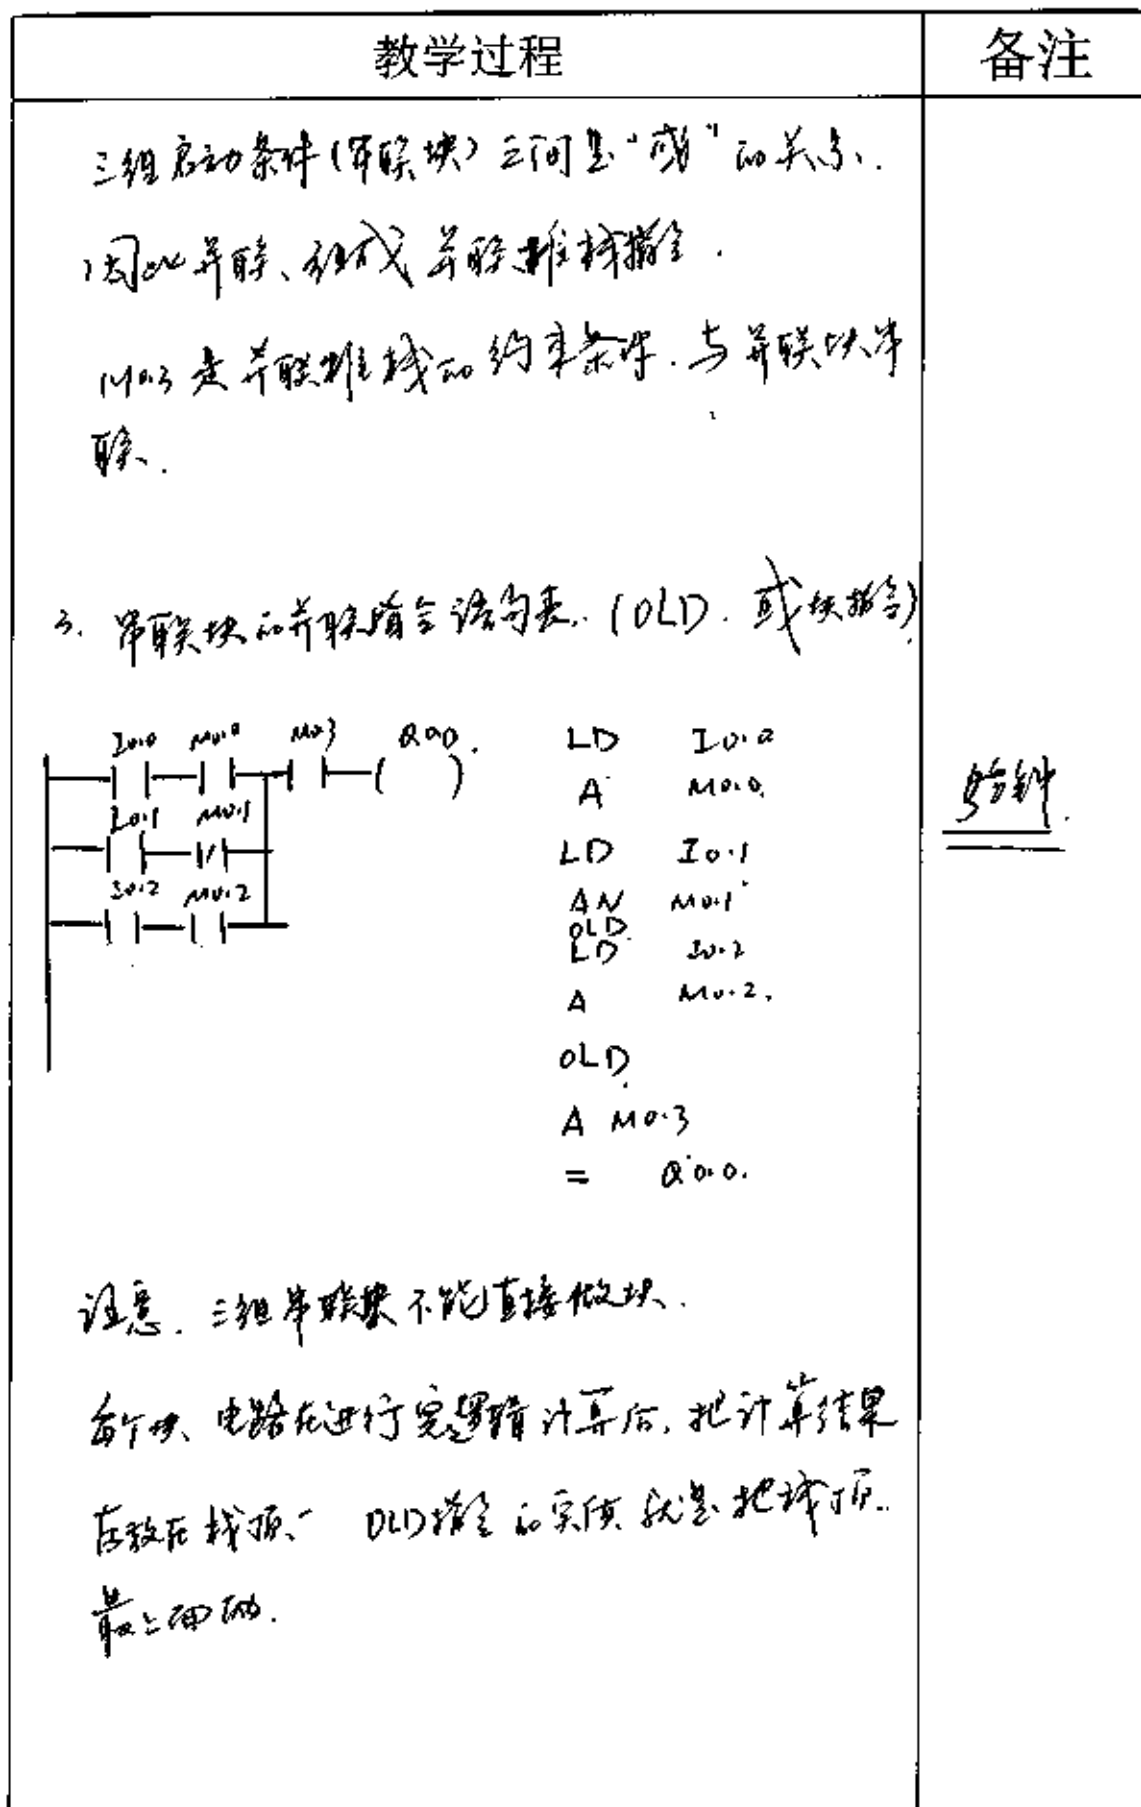 教学过程
备注
三组启动条件(串联块)之间是“或”的关系.
因此并联、组成并联堆栈指令.
M0.3是并联堆栈的约束条件.与并联块串
联.
3. 串联块的并联指令语句表.(OLD.或块指令)
I0.0 M0.0 M0.3 Q0.0.
I0.1 M0.1
I0.2 M0.2
LD I0.0
A M0.0.
LD I0.1
AN M0.1
OLD
LD I0.2
A M0.2.
OLD.
A M0.3
= Q0.0.
5分钟.
注意.三组串联块不能直接做块.
每个块、电路在进行完逻辑计算后,把计算结果
存放在栈顶、 OLD指令的实质就是把栈顶..
最上面的.